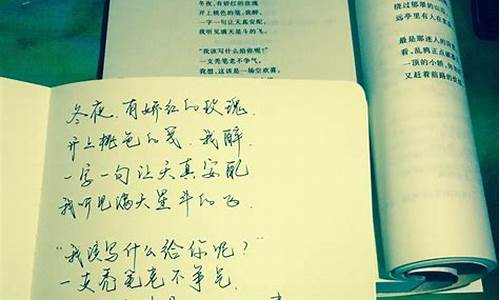 冬夜，有娇红的玫瑰
开上桃色的笺，我醉，
一字一句让天真安配，
我听见满天星斗的飞。
“我该写什么给你呢？”
一支秃笔老不争气，
我想，这该是一场空欢喜，
绕过郁翠的山
远亭里有人在
最是那迷人的
看，乱鸦正点破
一顶的小轿，
又赶着前路的
冬夜，有娇红的玫瑰．
开上桃色的笺．我醉．
一字一句让天真安配
我听见满天星斗的飞．
“我该写什么给你呢？”
一支秃笔老不争气．